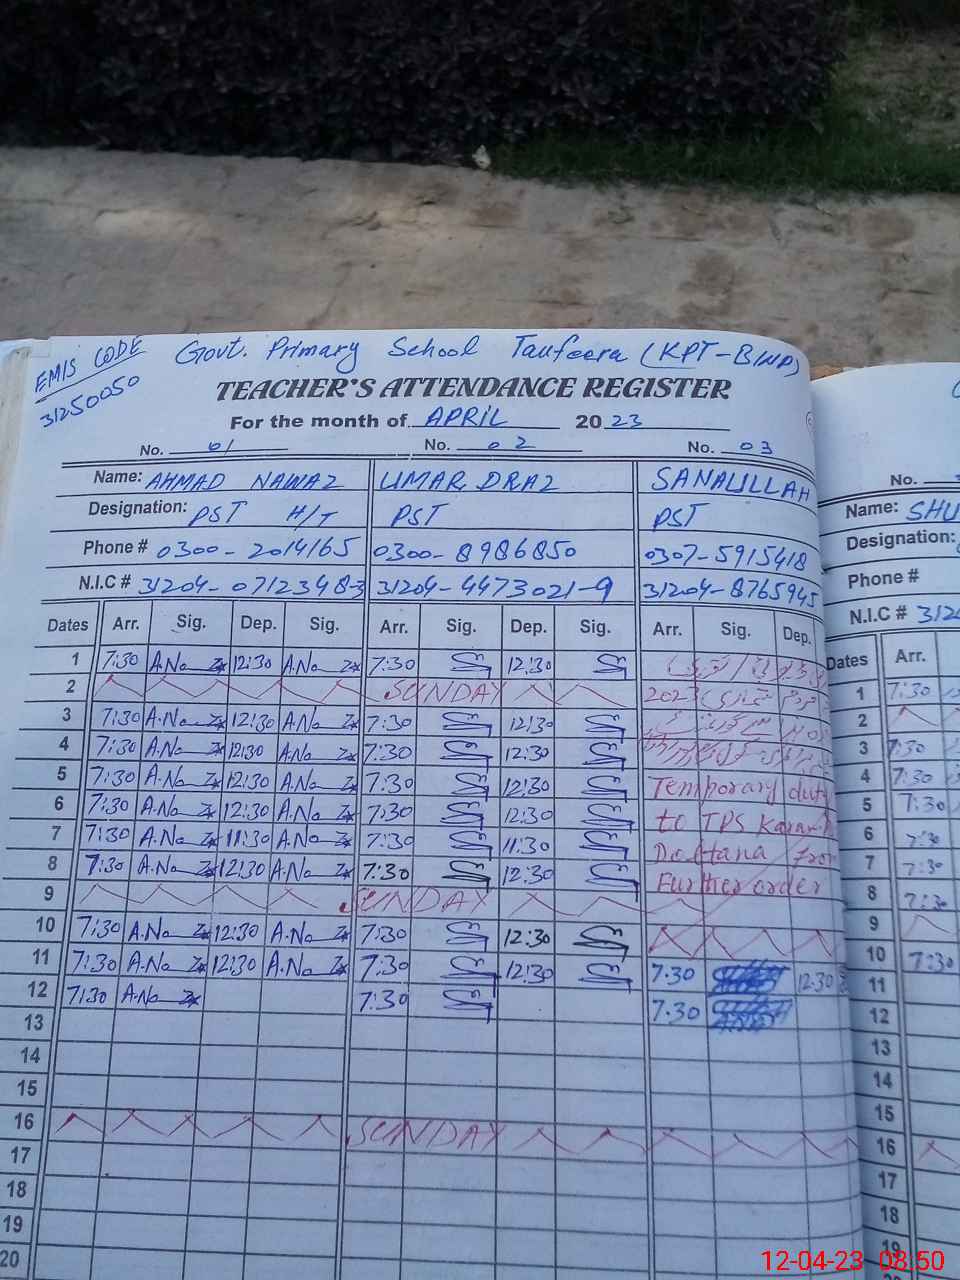 EMIS CODE
31250050
Govt. Primary School Taufeera (KPT-BWP)
TEACHER'S ATTENDANCE REGISTER
For the month of APRIL 2023
No. 01 No. 02 No. 03
Name: AHMAD NAWAZ UMAR DRAZ SANAULLAH
Designation: PST H/T PST PST
Phone # 0300-2014165 0300-8986850 0307-5915418
N.I.C # 31204-0712348-3 31204-4473021-9 31204-8765945
Dates Arr. Sig. Dep. Sig. Arr. Sig. Dep. Sig. Arr. Sig. Dep.
1 7:30 A.Na 12:30 A.Na 7:30 12:30
2 SUNDAY 2023
3 7:30 A.Na 12:30 A.Na 7:30 12:30
4 7:30 A.Na 12:30 A.Na 7:30 12:30
5 7:30 A.Na 12:30 A.Na 7:30 12:30 Temporary duty
6 7:30 A.Na 12:30 A.Na 7:30 12:30 to TPS
7 7:30 A.Na 11:30 A.Na 7:30 11:30
8 7:30 A.Na 12:30 A.Na 7:30 12:30 Further order
9 SUNDAY
10 7:30 A.Na 12:30 A.Na 7:30 12:30
11 7:30 A.Na 12:30 A.Na 7:30 12:30 7.30 12.30
12 7:30 A.Na 7:30 7.30
13
14
15
16 SUNDAY
17
18
19
20
No.
Name: SHU
Designation:
Phone #
N.I.C # 312
Dates Arr.
1 7:30
2
3 7:30
4 7:30
5 7:30
6 7:30
7 7:30
8 7:30
9
10 7:30
11
12
13
14
15
16
17
18
19
12-04-23 08.50